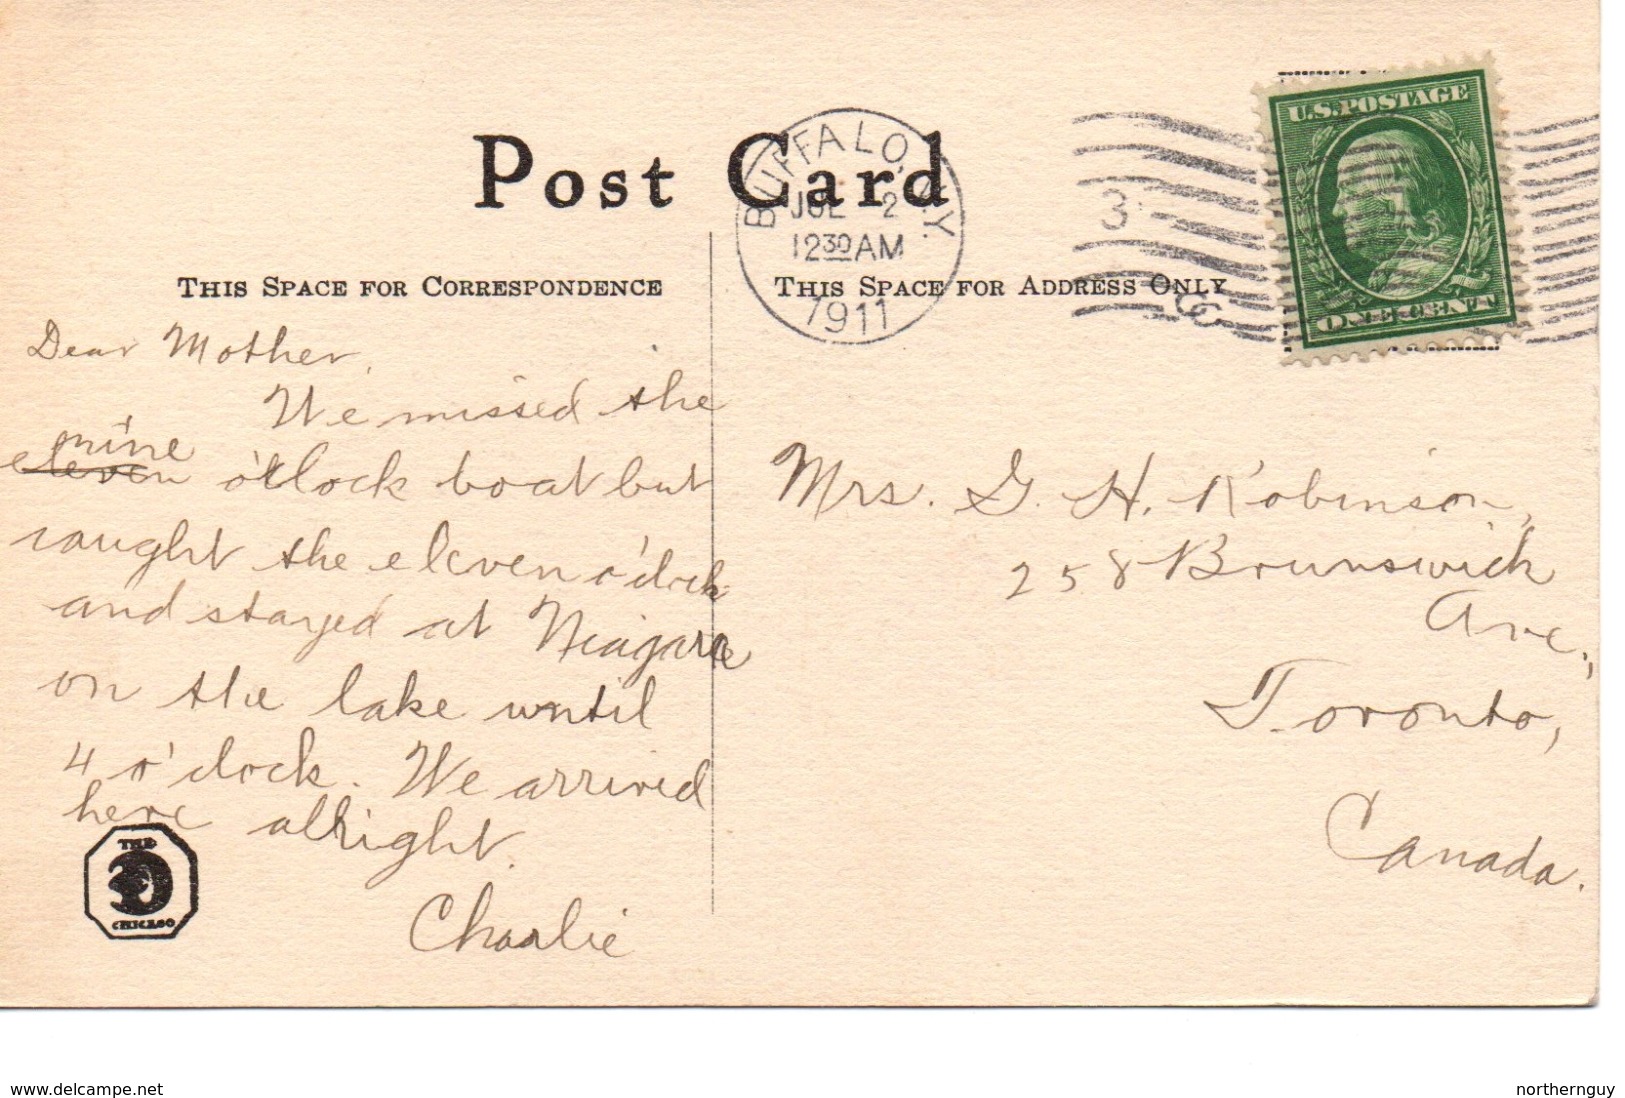 U.S. POSTAGE
ONE CENT
Post Card
BUFFALO, N.Y.
JUL 2
12 30 AM
1911
3
THIS SPACE FOR CORRESPONDENCE
THIS SPACE FOR ADDRESS ONLY
Dear Mother,
We missed the
nine
eleven o'clock boat but
caught the eleven o'clock
and stayed at Niagara
on the lake until
4 o'clock. We arrived
here allright.
Charlie
THE
CHICAGO
Mrs. G. H. Robinson,
258 Brunswick
Ave.,
Toronto,
Canada.
www.delcampe.net
northernguy